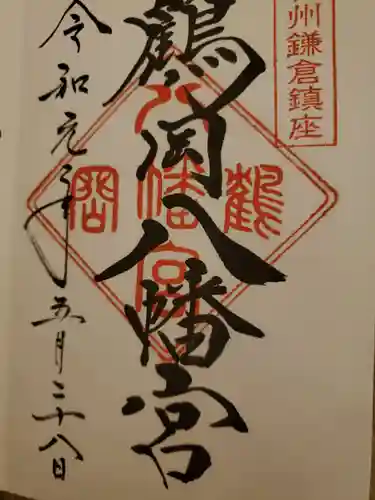 州鎌倉鎮座
鶴岡八幡宮
鶴
八幡宮
岡
令和元年五月二十八日